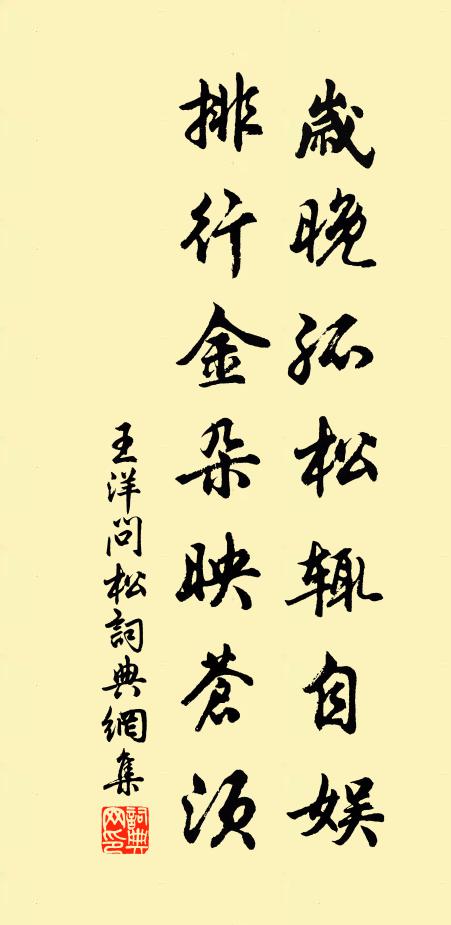 歲晚孤松辄自娱
排行金朵映蒼須
王洋問松詞典網集
詞典网印